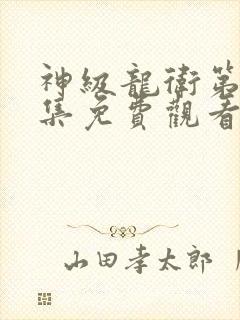 神級龍衛第
集免費觀看
山田孝太郎